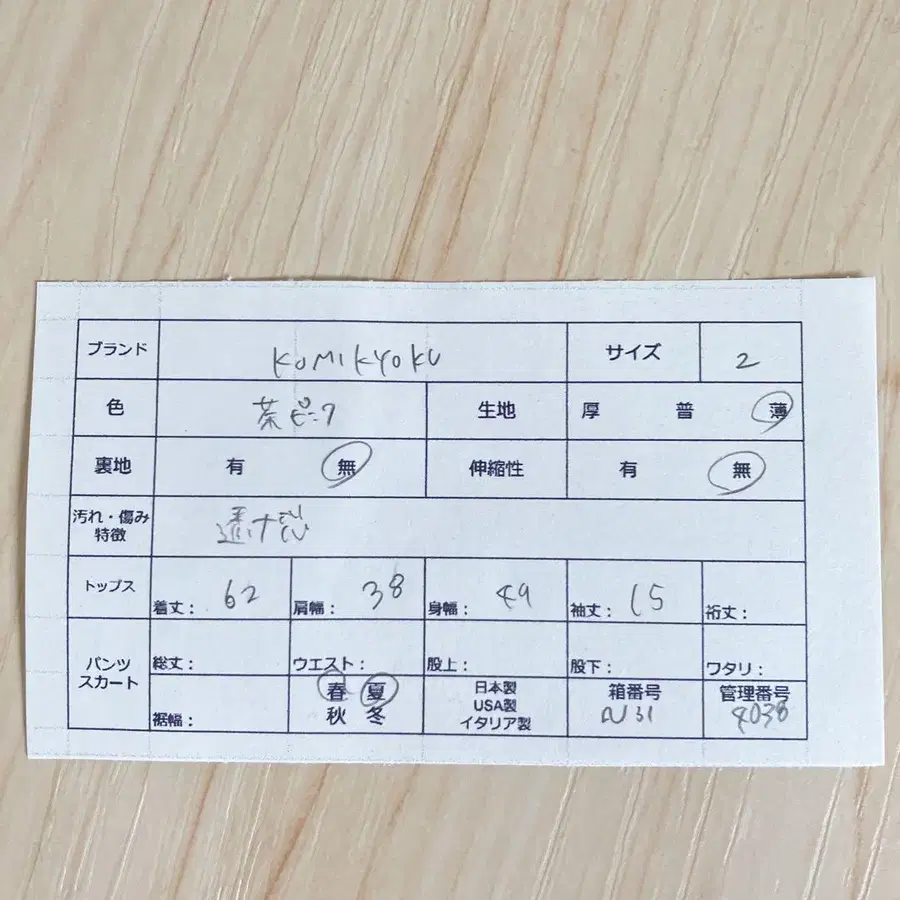 ブランド KUMIKYOKU サイズ 2
色 茶ピンク 生地 厚 普 薄
裏地 有 無 伸縮性 有 無
汚れ・傷み
特徴 透け感
トップス 着丈: 62 肩幅: 38 身幅: 49 袖丈: 15 裄丈:
パンツ
スカート 総丈: ウエスト: 股上: 股下: ワタリ:
裾幅: 春 夏
秋 冬
日本製
USA製
イタリア製
箱番号
N31
管理番号
4038